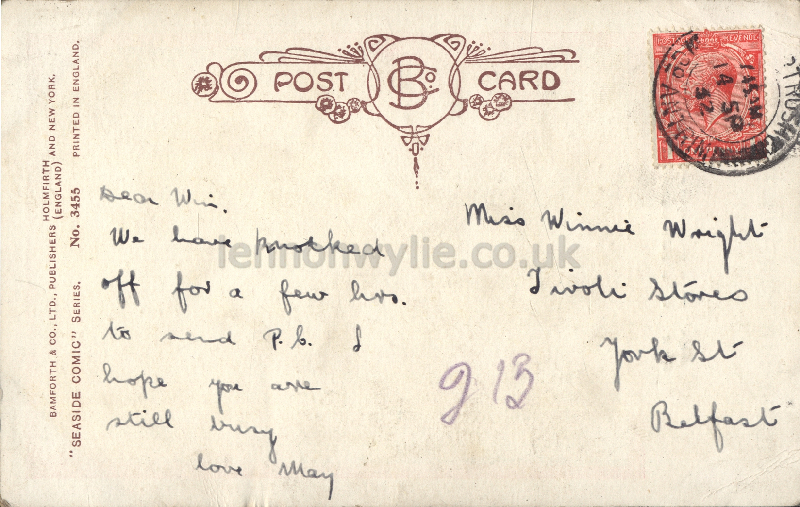 BAMFORTH & CO., LTD., PUBLISHERS HOLMFIRTH
(ENGLAND) AND NEW YORK.
"SEASIDE COMIC" SERIES. No. 3455 PRINTED IN ENGLAND.
POST B Co CARD
45 PM
14 SP
32
Dear Win.
We have knocked
off for a few hrs.
to send P.C. I
hope you are
still busy
love May
Miss Winnie Wright
Tivoli Stores
York St
Belfast
913
lennonwylie.co.uk